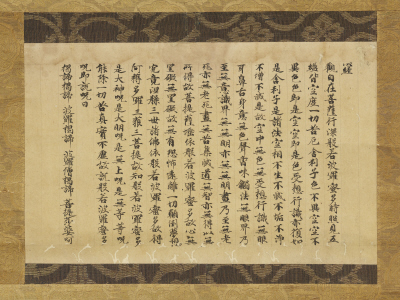 經
觀自在菩薩行深般若波羅蜜多時照見五
蘊皆空度一切苦厄舍利子色不異空空不
異色色即是空空即是色受想行識亦復如
是舍利子是諸法空相不生不滅不垢不淨
不增不減是故空中無色無受想行識無眼
耳鼻舌身意無色聲香味觸法無眼界乃
至無意識界無無明亦無無明盡乃至無老
死亦無老死盡無苦集滅道無智亦無得以無
所得故菩提薩埵依般若波羅蜜多故心無
罣礙無罣礙故無有恐怖遠離一切顛倒夢想
究竟涅槃三世諸佛依般若波羅蜜多故得
阿耨多羅三藐三菩提故知般若波羅蜜多
是大神呪是大明呪是無上呪是無等等呪
能除一切苦真實不虛故說般若波羅蜜多
呪即說呪曰
揭諦揭諦 波羅揭諦 波羅僧揭諦 菩提莎婆呵